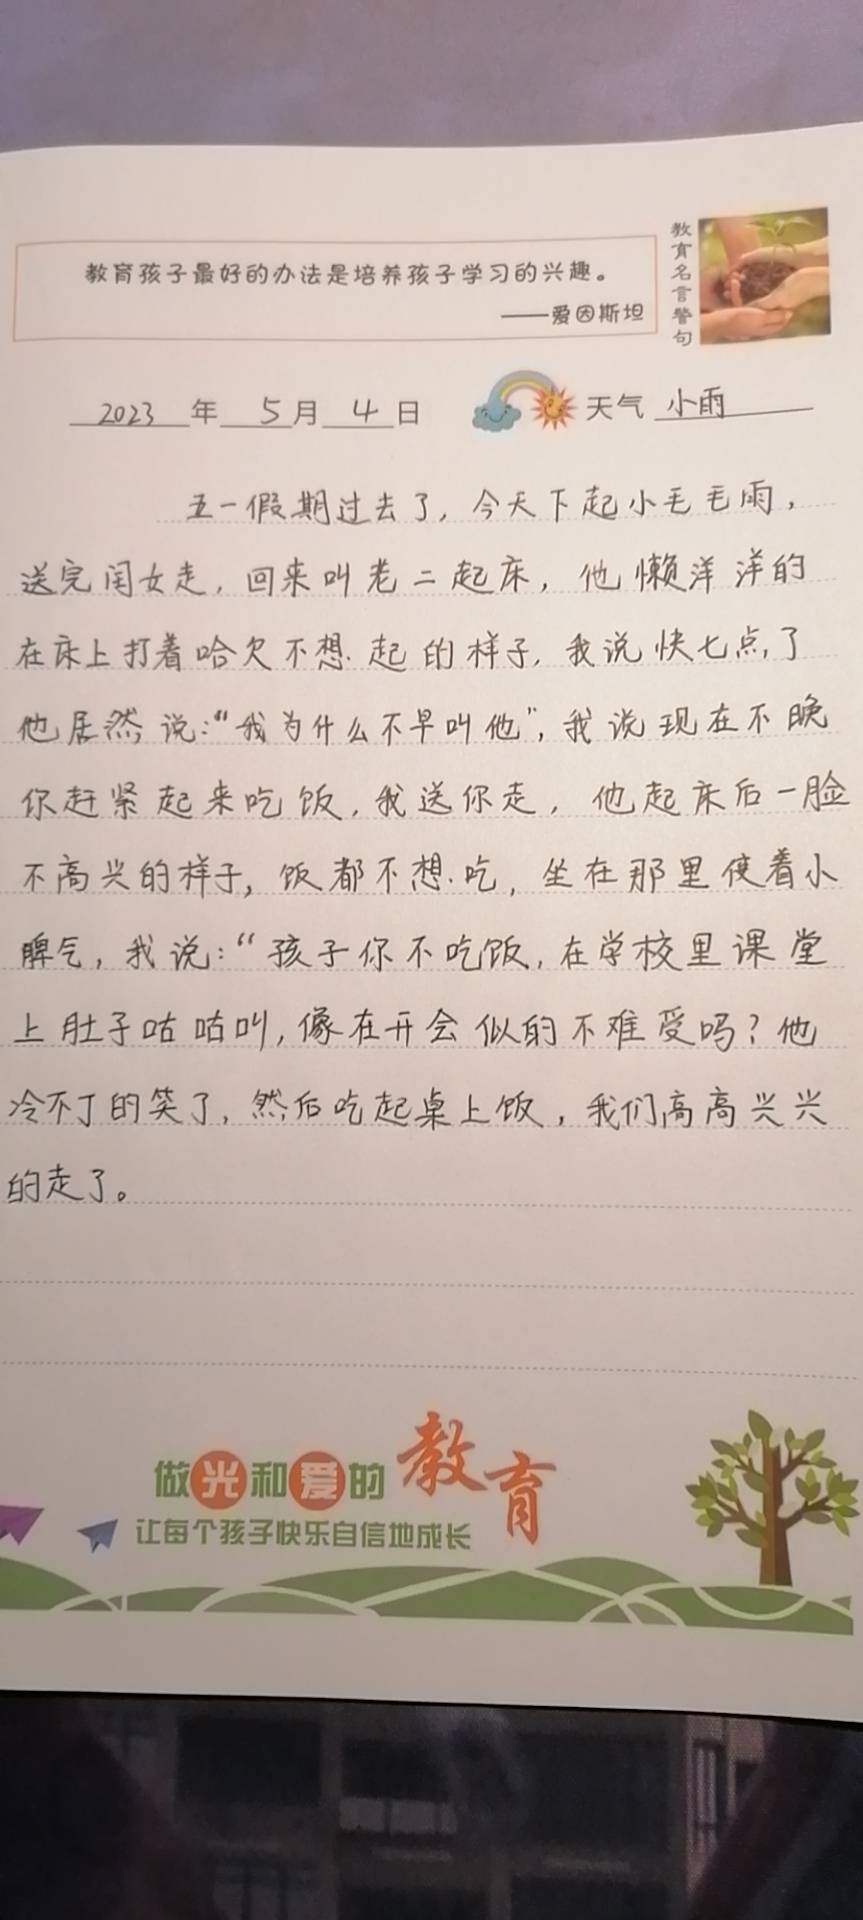 教育孩子最好的办法是培养孩子学习的兴趣。
——爱因斯坦
教育名言警句
2023年5月4日 天气 小雨
五一假期过去了，今天下起小毛毛雨，
送完闺女走，回来叫老二起床，他懒洋洋的
在床上打着哈欠不想起的样子，我说快七点了
他居然说：“我为什么不早叫他”，我说现在不晚
你赶紧起来吃饭，我送你走，他起床后一脸
不高兴的样子，饭都不想吃，坐在那里使着小
脾气，我说：“孩子你不吃饭，在学校里课堂
上肚子咕咕叫，像在开会似的不难受吗？他
冷不丁的笑了，然后吃起桌上饭，我们高高兴兴
的走了。
做光和爱的教育
让每个孩子快乐自信地成长